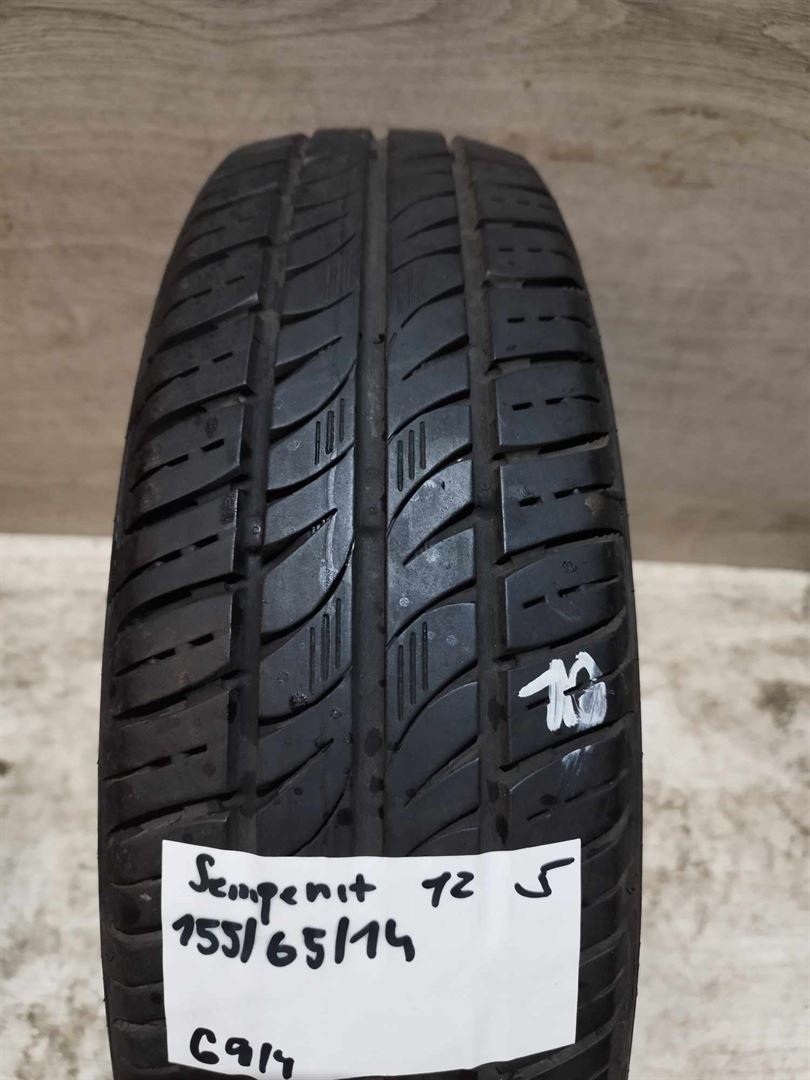 10
Sempenit 12 5
155/65/14
G9/4